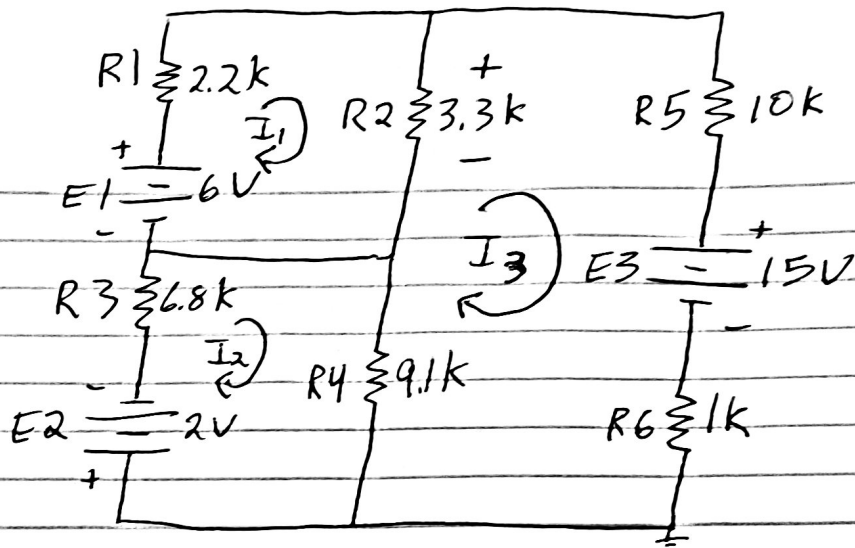 R1 2.2k
+
I1
R2 3.3k
+
-
R5 10k
E1 6V
+
-
I3
E3 15V
+
-
R3 6.8k
I2
R4 9.1k
E2 2V
-
+
R6 1k